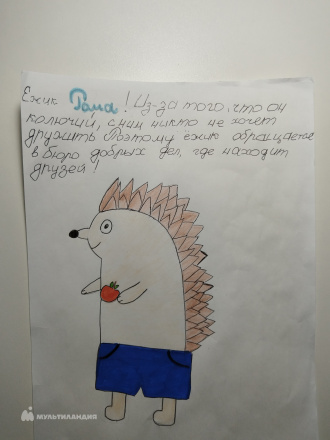 Ежик Рома! Из-за того, что он
колючий, с ним никто не хочет
дружить. Поэтому ежик обращается
в Бюро добрых дел, где находит
друзей!
МУЛЬТИЛАНДИЯ